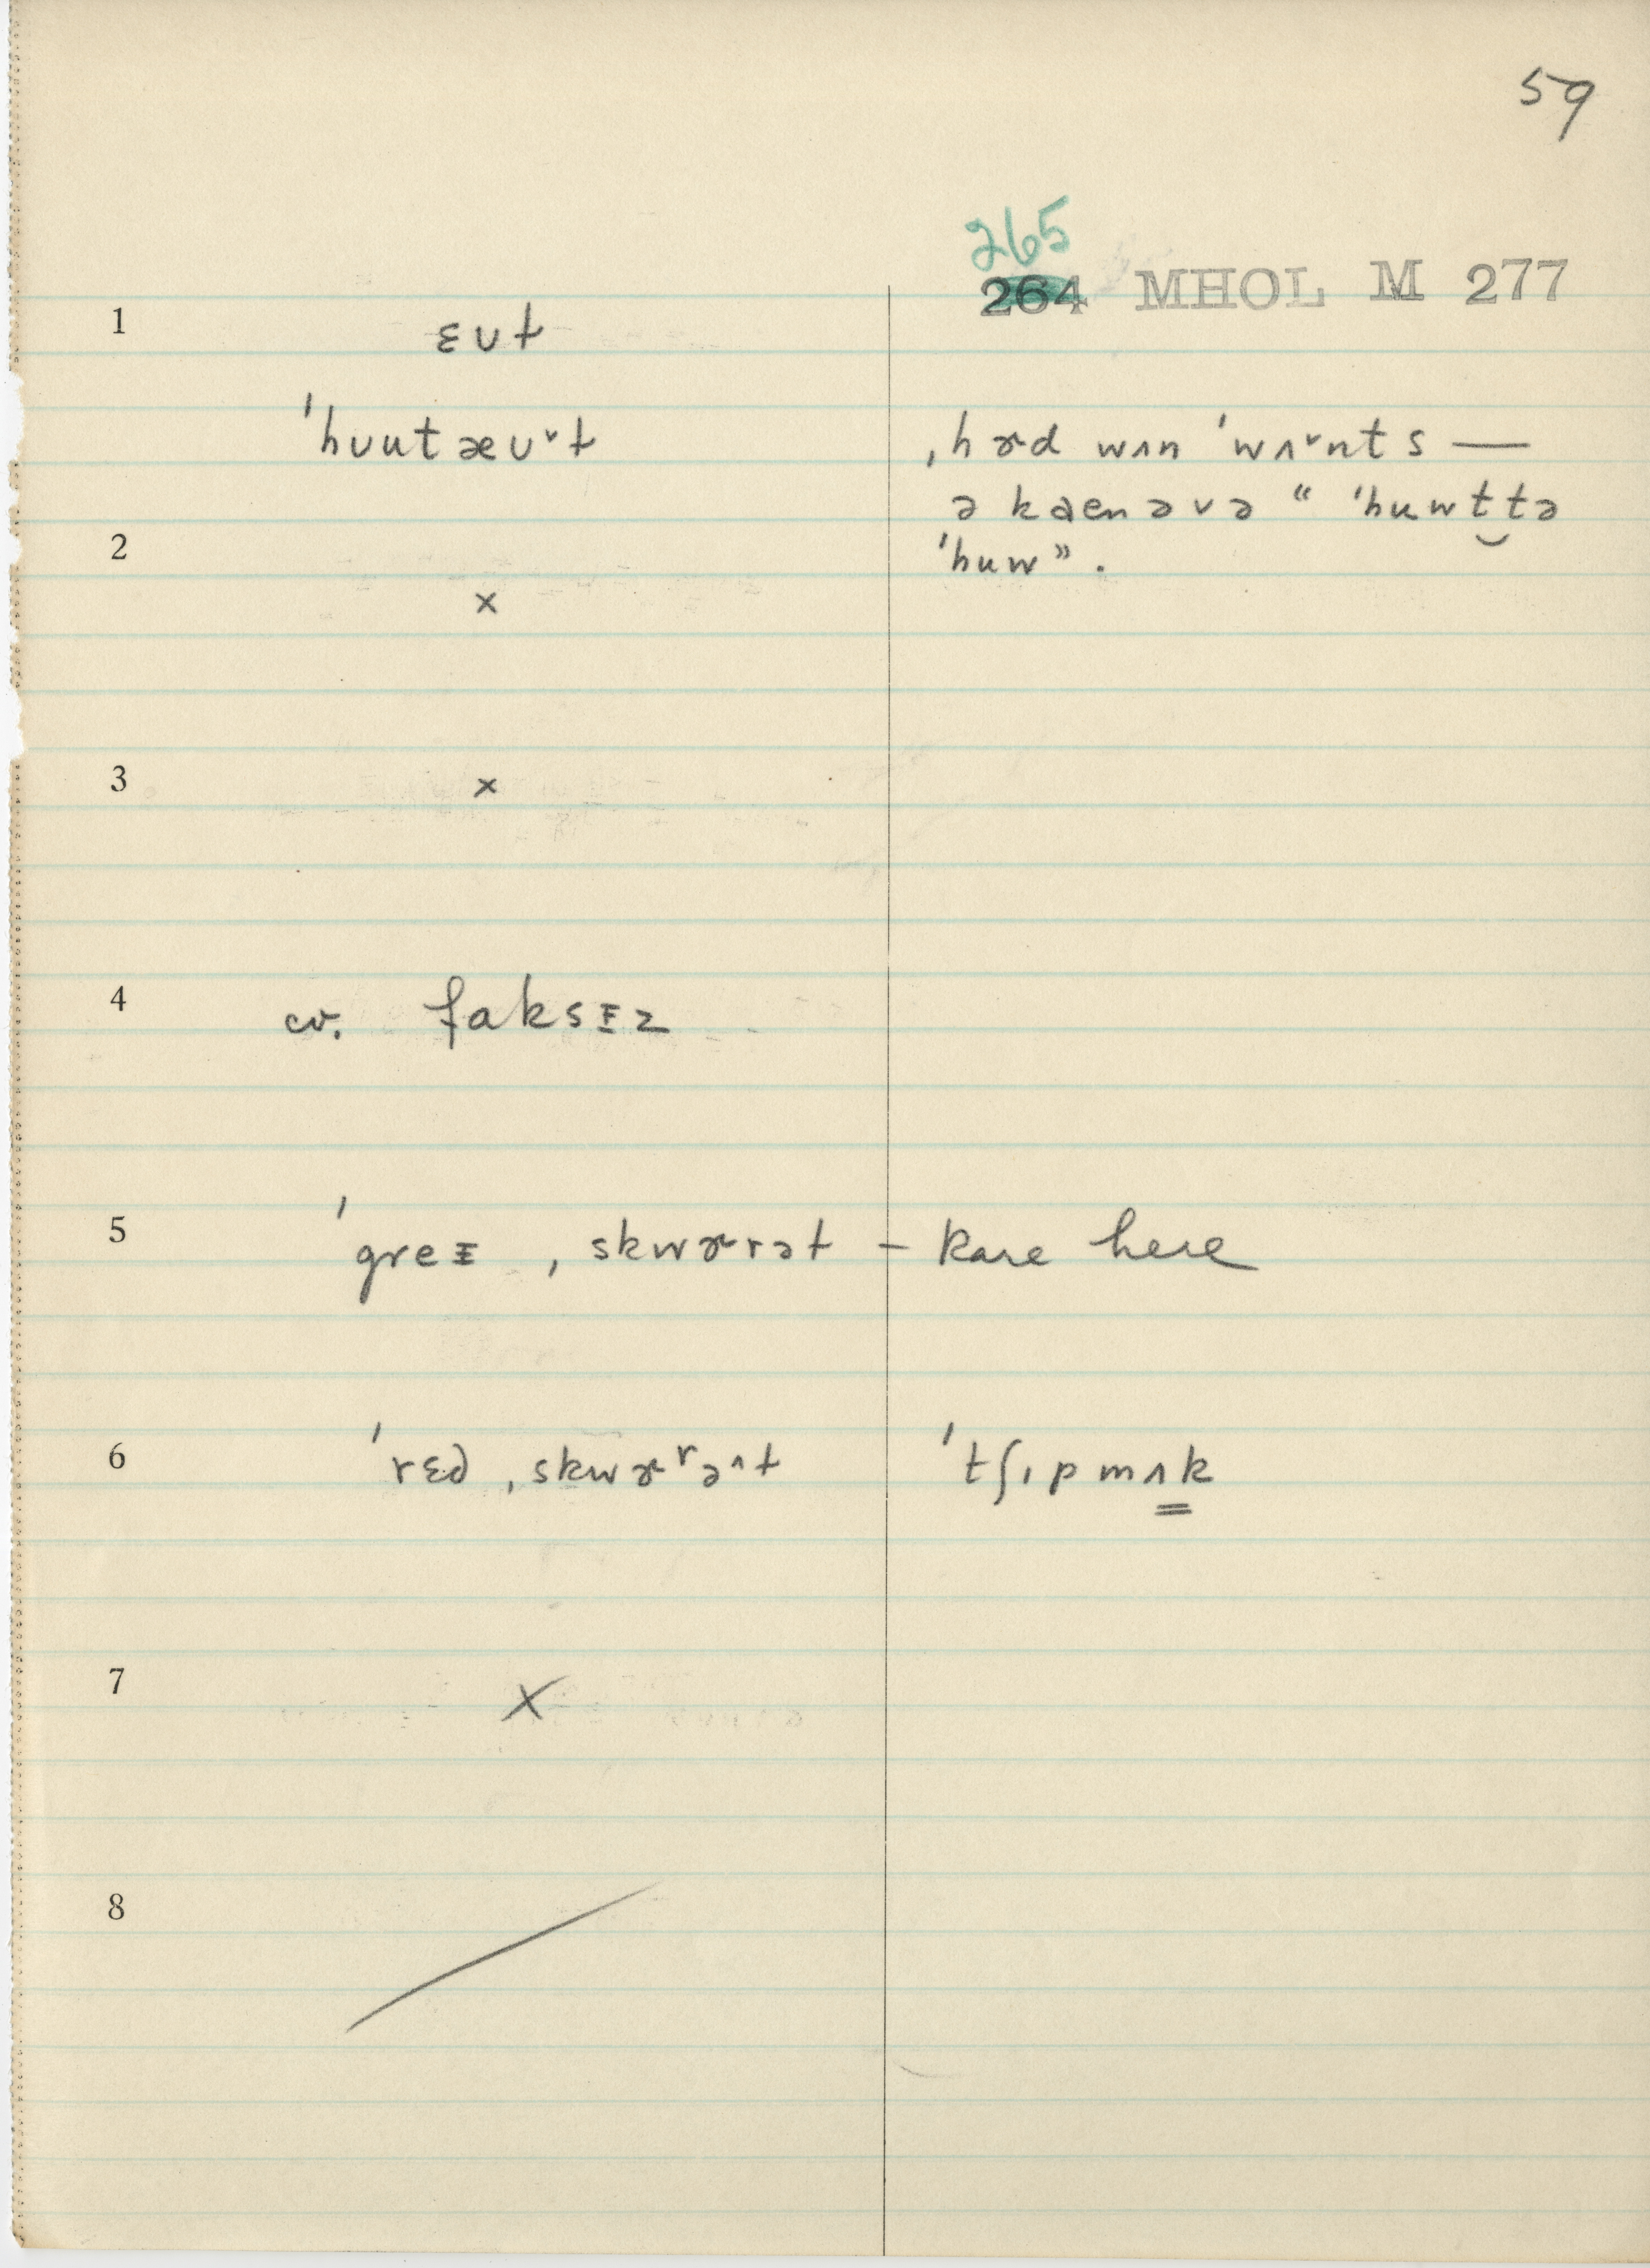 59
265
264 MHOL M 277
1 ɛʊɫ
ˈhʊutæʊ˅ɫ ˌhɚd wʌn ˈwʌ˅nts —
ə kaenəvə “ ˈhuwt‿tə
2 ˈhuw” .
×
3 ×
4 cv. faksᵻz
5 ˈgreᵻ ˌskwɚrəɫ – Rare here
6 ˈrɛd ˌskwɚʳə^ɫ ˈtʃɪpmʌk
7 ×
8